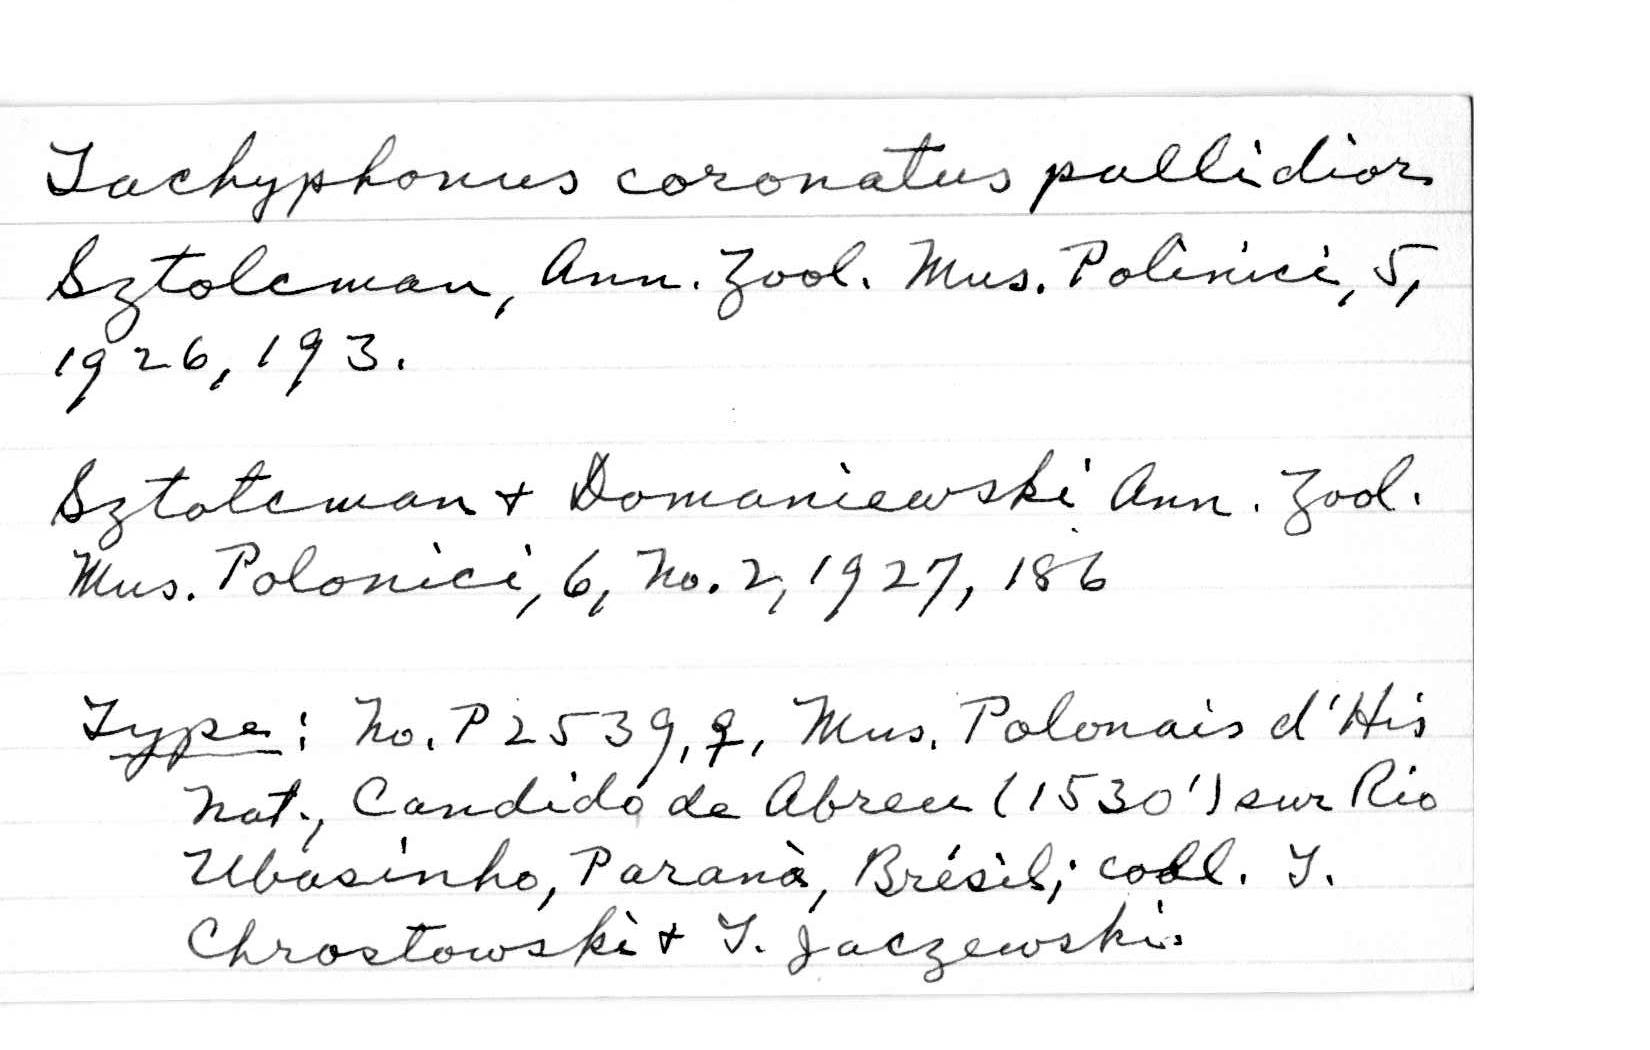 Tachyphonus coronatus pallidior
Sztolcman, Ann. Zool. Mus. Polinici, 5,
1926, 193.
Sztotcman + Domaniewski Ann. Zool.
Mus. Polonici, 6, No. 2, 1927, 186
Type: No. P2539, ♀, Mus. Polonais d'His
Nat., Candido de Abreu (1530') sur Rio
Ubasinho, Paranà, Brésil; coll. T.
Chrostowski + T. Jaczewski.